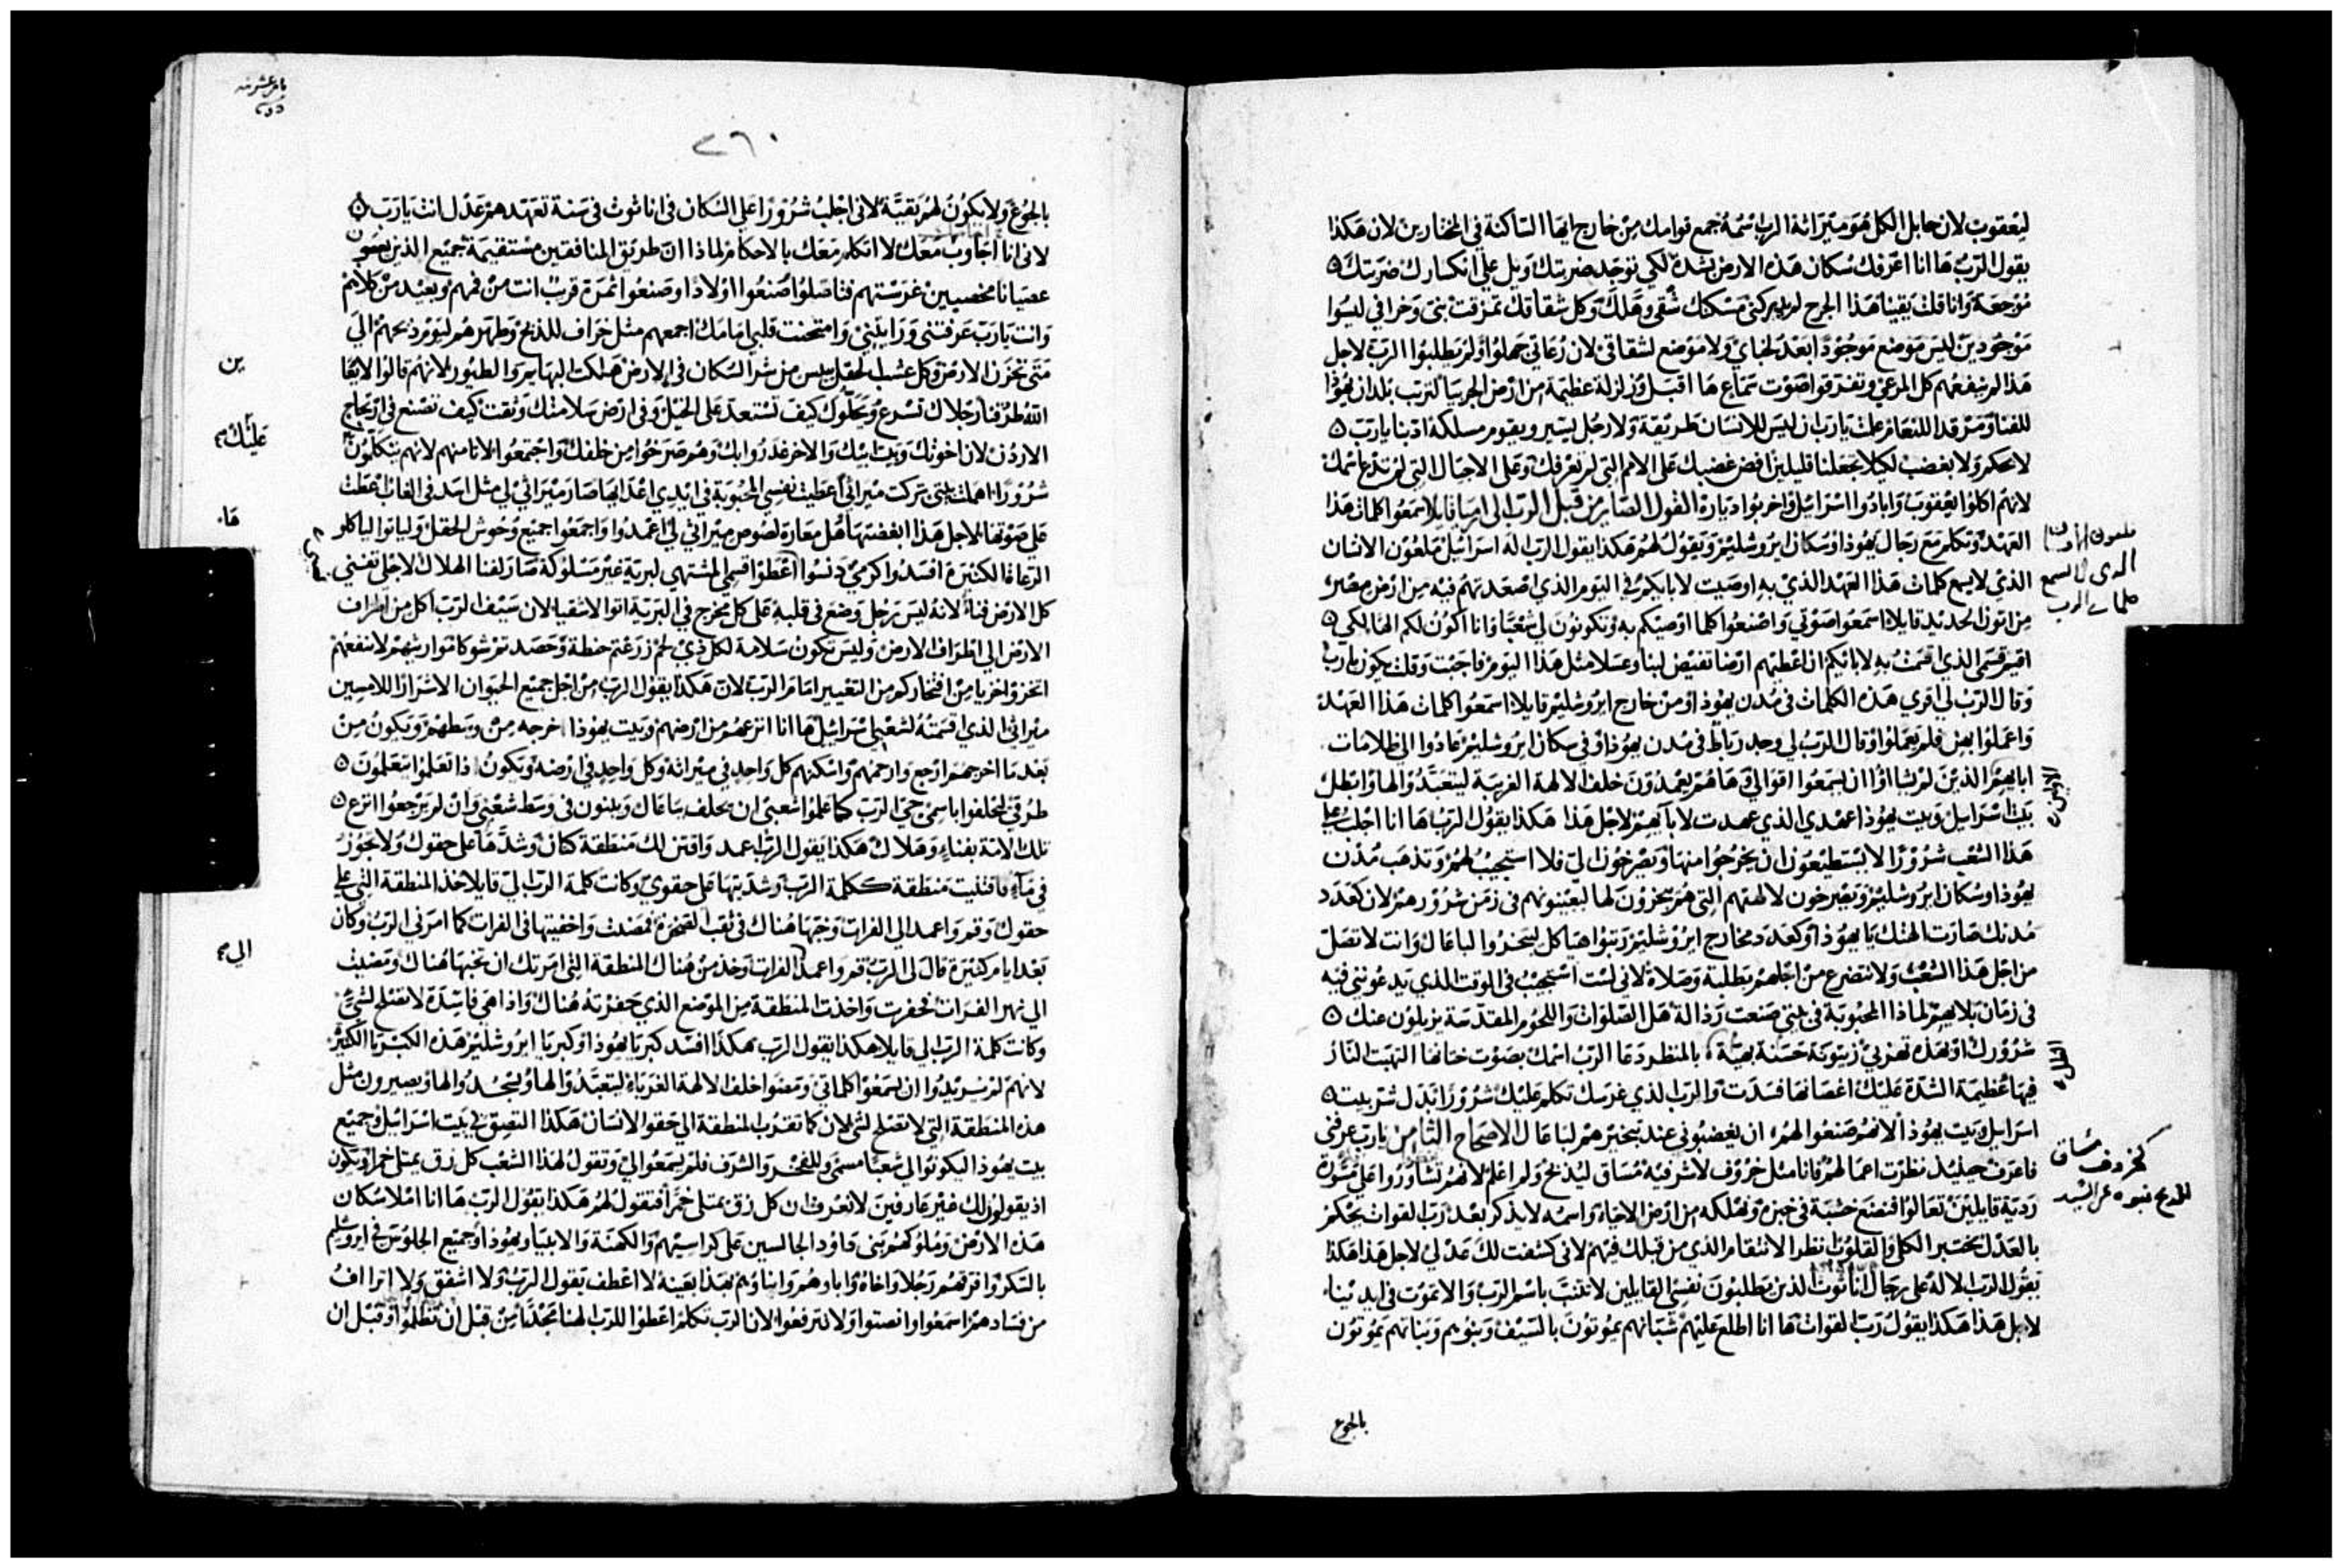 ليعقوب لان جابل الكل هو ميراثه الرب اسمه جمع قوامك من خارج ايها الساكنة في المختارين لان هكذا
يقول الرب ها انا اعرقل سكان هذه الارض بشدة لكي توجد ضربتك ويل علي انكسارك ضربتك
موجعة وانا قلت يقينا هذا الجرح لي مسكنك شقي وهلك وكل شقاقك تمزقت بني وخرافي ليسوا
موجودين ليس موضع موجودا بعد لخباي ولا موضع لشقاقي لان رعاتي جهلوا ولم يطلبوا الرب لاجل
هذا لم يفهم كل المرعي وتفرقوا صوت سماع ها اقبل وزلزلة عظيمة من ارض الجربيا لترتب بلدان يهوذا
للفنا ومرقدا للنعام علمت يارب ان ليس للانسان طريقة ولا رجل يسير ويقوم مسلكه ادبنا يارب
لا بحكم ولا بغضب لكيلا تجعلنا قليلين افض غضبك على الامم التي لم تعرفك وعلى الاجيال التي لم تدع باسمك
لانهم اكلوا يعقوب وابادوا اسرائيل واخربوا دياره القول الصاير من قبل الرب الى ارميا قايلا اسمعوا كلمات هذا
العهد وتكلم مع رجال يهوذا وسكان ايروشليم وتقول لهم هكذا يقول الرب اله اسرائيل ملعون الانسان
الذي لا يسمع كلمات هذا العهد الذي به اوصيت لابايكم في اليوم الذي اصعدتهم فيه من ارض مصر
من اتون الحديد قايلا اسمعوا صوتي واصنعوا كلما اوصيكم به وتكونون لي شعبا وانا اكون لكم الها لكي
اقيم قسمي الذي اقسمت به لابايكم ان اعطيهم ارضا تفيض لبنا وعسلا مثل هذا اليوم فاجبت وقلت يكون يارب
وقال الرب لي اقري هذه الكلمات في مدن يهوذا ومن خارج ايروشليم قايلا اسمعوا كلمات هذا العهد
واعملوا بهن فلم يعملوا وقال الرب لي وجد رباط في مدن يهوذا وفي سكان ايروشليم عادوا الى ظلامات
ابايهم الذين لم يشاؤا ان يسمعوا اقوالي وها هم يعمدون خلف الالهة الغريبة ليتعبدوا لها وابطل
بيت اسرايل وبيت يهوذا عهدي الذي عهدت لابايهم لاجل هذا هكذا يقول الرب ها انا اجلب علي
هذا الشعب شرورا لا يستطيعون ان يخرجوا منها ويصرخون الي فلا استجيب لهم وتذهب مدن
يهوذا وسكان ايروشليم ويصرخون لالهتهم التي هم يبخرون لها ليعينونهم في زمن شرورهم لان كعدد
مدنك صارت الهتك يا يهوذا وكعدد مخارج ايروشليم رتبوا هياكل ليبخروا لباعال وانت لا تصل
من اجل هذا الشعب ولا تتضرع من اجلهم بطلبة وصلاة لاني لست استجيب في الوقت الذي يدعونني فيه
في زمان بلايهم لماذا المحبوبة في بيتي صنعت رذالة هل الصلوات واللحوم المقدسة يزيلون عنك
شرورك او بهذه تهربي زيتونة حسنة بهية بالمنظر دعا الرب اسمك بصوت ختانها التهبت النار
فيها عظيمة الشدة عليك اغصانها فسدت والرب الذي غرسك تكلم عليك شرورا بدل شر بيت
اسرايل وبيت يهوذا لانهم صنعوا لهم ان يغضبوني عند تبخيرهم لباعال الاصحاح الثامن يارب عرفني
فاعرف حينئذ نظرت اعمالهم فانا مثل خروف لا شر فيه مساق ليذبح ولم اعلم لانهم تشاوروا علي مشورة
ردية قايلين تعالوا فنضع خشبة في خبزه ونهلكه من ارض الاحياء واسمه لا يذكر بعد رب القوات يحكم
بالعدل مختبر الكلى والقلوب انظر الانتقام الذي من قبلك فيهم لاني كشفت لك عدلي لاجل هذا هكذا
يقول الرب الاله على رجال اناثوث الذين يطلبون نفسي القايلين لا تتنبا باسم الرب والا تموت في ايدينا
لاجل هذا هكذا يقول رب القوات ها انا اطلع عليهم شبانهم يموتون بالسيف وبنوهم وبناتهم يموتون
بالجوع
ملعون الانسان
الذي لا يسمع
كلمات الرب
الاولين
كخروف مساق
للذبح نبوة عن السيد
٣٦٠
بالجوع ولا يكون لهم بقية لاني اجلب شرورا على السكان في اناثوث في سنة تعهدهم عدل انت يارب
لاني انا اجاوب معك لا اتكلم معك بالاحكام لماذا ان طريق المنافقين مستقيمة جميع الذين يعصون
عصيانا مخصبين غرستهم فتاصلوا صنعوا اولادا وصنعوا ثمرة قريب انت من فمهم وبعيد من كلاهم
وانت يارب عرفتني ورايتني وامتحنت قلبي امامك اجمعهم مثل خراف للذبح وطهرهم ليوم ذبحهم الي
متى تحزن الارض وكل عشب الحقل ييبس من شر السكان في الارض هلكت البهايم والطيور لانهم قالوا لا يرا
الله طرقنا رجلاك تسرع ويحلوك كيف تستعد على الخيل وفي ارض سلامتك وثقت كيف تصنع في ارتجاج
الاردن لان اخوتك وبيت ابيك والاخر غدروا بك وهم صرخوا من خلفك واجتمعوا لا تامنهم لانهم يتكلمون
شرورا اهملت بيتي تركت ميراثي اعطيت نفسي المحبوبة في ايدي اعدايها صار ميراثي لي مثل اسد في الغاب اعطت
علي صوتها لاجل هذا ابغضتها هل مغارة لصوص ميراثي لي اعمدوا واجمعوا جميع وحوش الحقل ولياتوا لياكلو
الرعاة الكثيرة افسدوا كرمي دنسوا اعطوا قسمي المشتهي لبرية غير مسلوكة صار لفنا الهلاك لاجلي تفني
كل الارض فناء لانه ليس رجل وضع في قلبه على كل مخرج في البرية اتوا الاشقيا لان سيف الرب اكل من اطراف
الارض الي اطراف الارض وليس تكون سلامة لكل ذي لحم زرعتم حنطة وحصدتم شوكا مواريثهم لا تنفعهم
اخزوا خزيا من افتخاركم من التعيير امام الرب لان هكذا يقول الرب من اجل جميع الجيران الاشرار اللامسين
ميراثي الذي اقسمته لشعبي اسرائيل ها انا انزعهم من ارضهم وبيت يهوذا اخرجه من وسطهم ويكون من
بعد ما اخرجهم ارجع وارحمهم واسكنهم كل واحد في ميراثه وكل واحد في ارضه ويكون اذا تعلموا متعلمون
طرقي ليحلفوا باسمي حي الرب كما علموا شعبي ان يحلف بباعال ويبنون في وسط شعبي وان لم يرجعوا انزع
تلك الامة بفناء وهلاك هكذا يقول الرب اعمد واقتن لك منطقة كتان وشدها على حقوك ولا تجوز
في ماء فاقتنيت منطقة ككلمة الرب وشديتها على حقوي وكانت كلمة الرب الي قايلا خذ المنطقة التي علي
حقوك وقم واعمد الي الفرات وخبها هناك في ثقب الصخرة فمضيت واخفيتها في الفرات كما امرني الرب وكان
بعد ايام كثيرة قال لي الرب قم واعمد الفرات وخذ من هناك المنطقة التي امرتك ان تخبها هناك ومضيت
الي نهر الفرات فحفرت واخذت المنطقة من الموضع الذي حفرته هناك واذا هي فاسدة لا تصلح لشي
وكانت كلمة الرب لي قايلا هكذا يقول الرب هكذا افسد كبريا يهوذا وكبريا ايروشليم هذه الكبريا الكثير
لانهم لم يريدوا ان يسمعوا كلماتي ومضوا خلف الالهة الغرباء ليتعبدوا لها ويسجدوا لها ويصيرون مثل
هذه المنطقة التي لا تصلح لشي لان كما تقترب المنطقة الي حقو الانسان هكذا التصق لي بيت اسرائيل وجميع
بيت يهوذا ليكونوا لي شعبا مسمى وللفخر والشرف فلم يسمعوا لي وتقول لهذا الشعب كل زق يمتلي خمرا ويكون
اذ يقولون لك غير عارفين لا نعرف ان كل زق يمتلي خمرا فتقول لهم هكذا يقول الرب ها انا املا سكان
هذه الارض وملوكهم بني داود الجالسين على كراسيهم والكهنة والانبياء ويهوذا وجميع الجلوس في ايروشليم
بالسكر وافرقهم رجلا واخاه واباوهم وابناوهم بهذا بعينه لا اعطف يقول الرب ولا اشفق ولا اتراف
من فسادهم اسمعوا وانصتوا ولا تترفعوا لان الرب تكلم اعطوا للرب الهنا مجدا من قبل ان تظلموا وقبل ان
ين
عليك
ها
الي